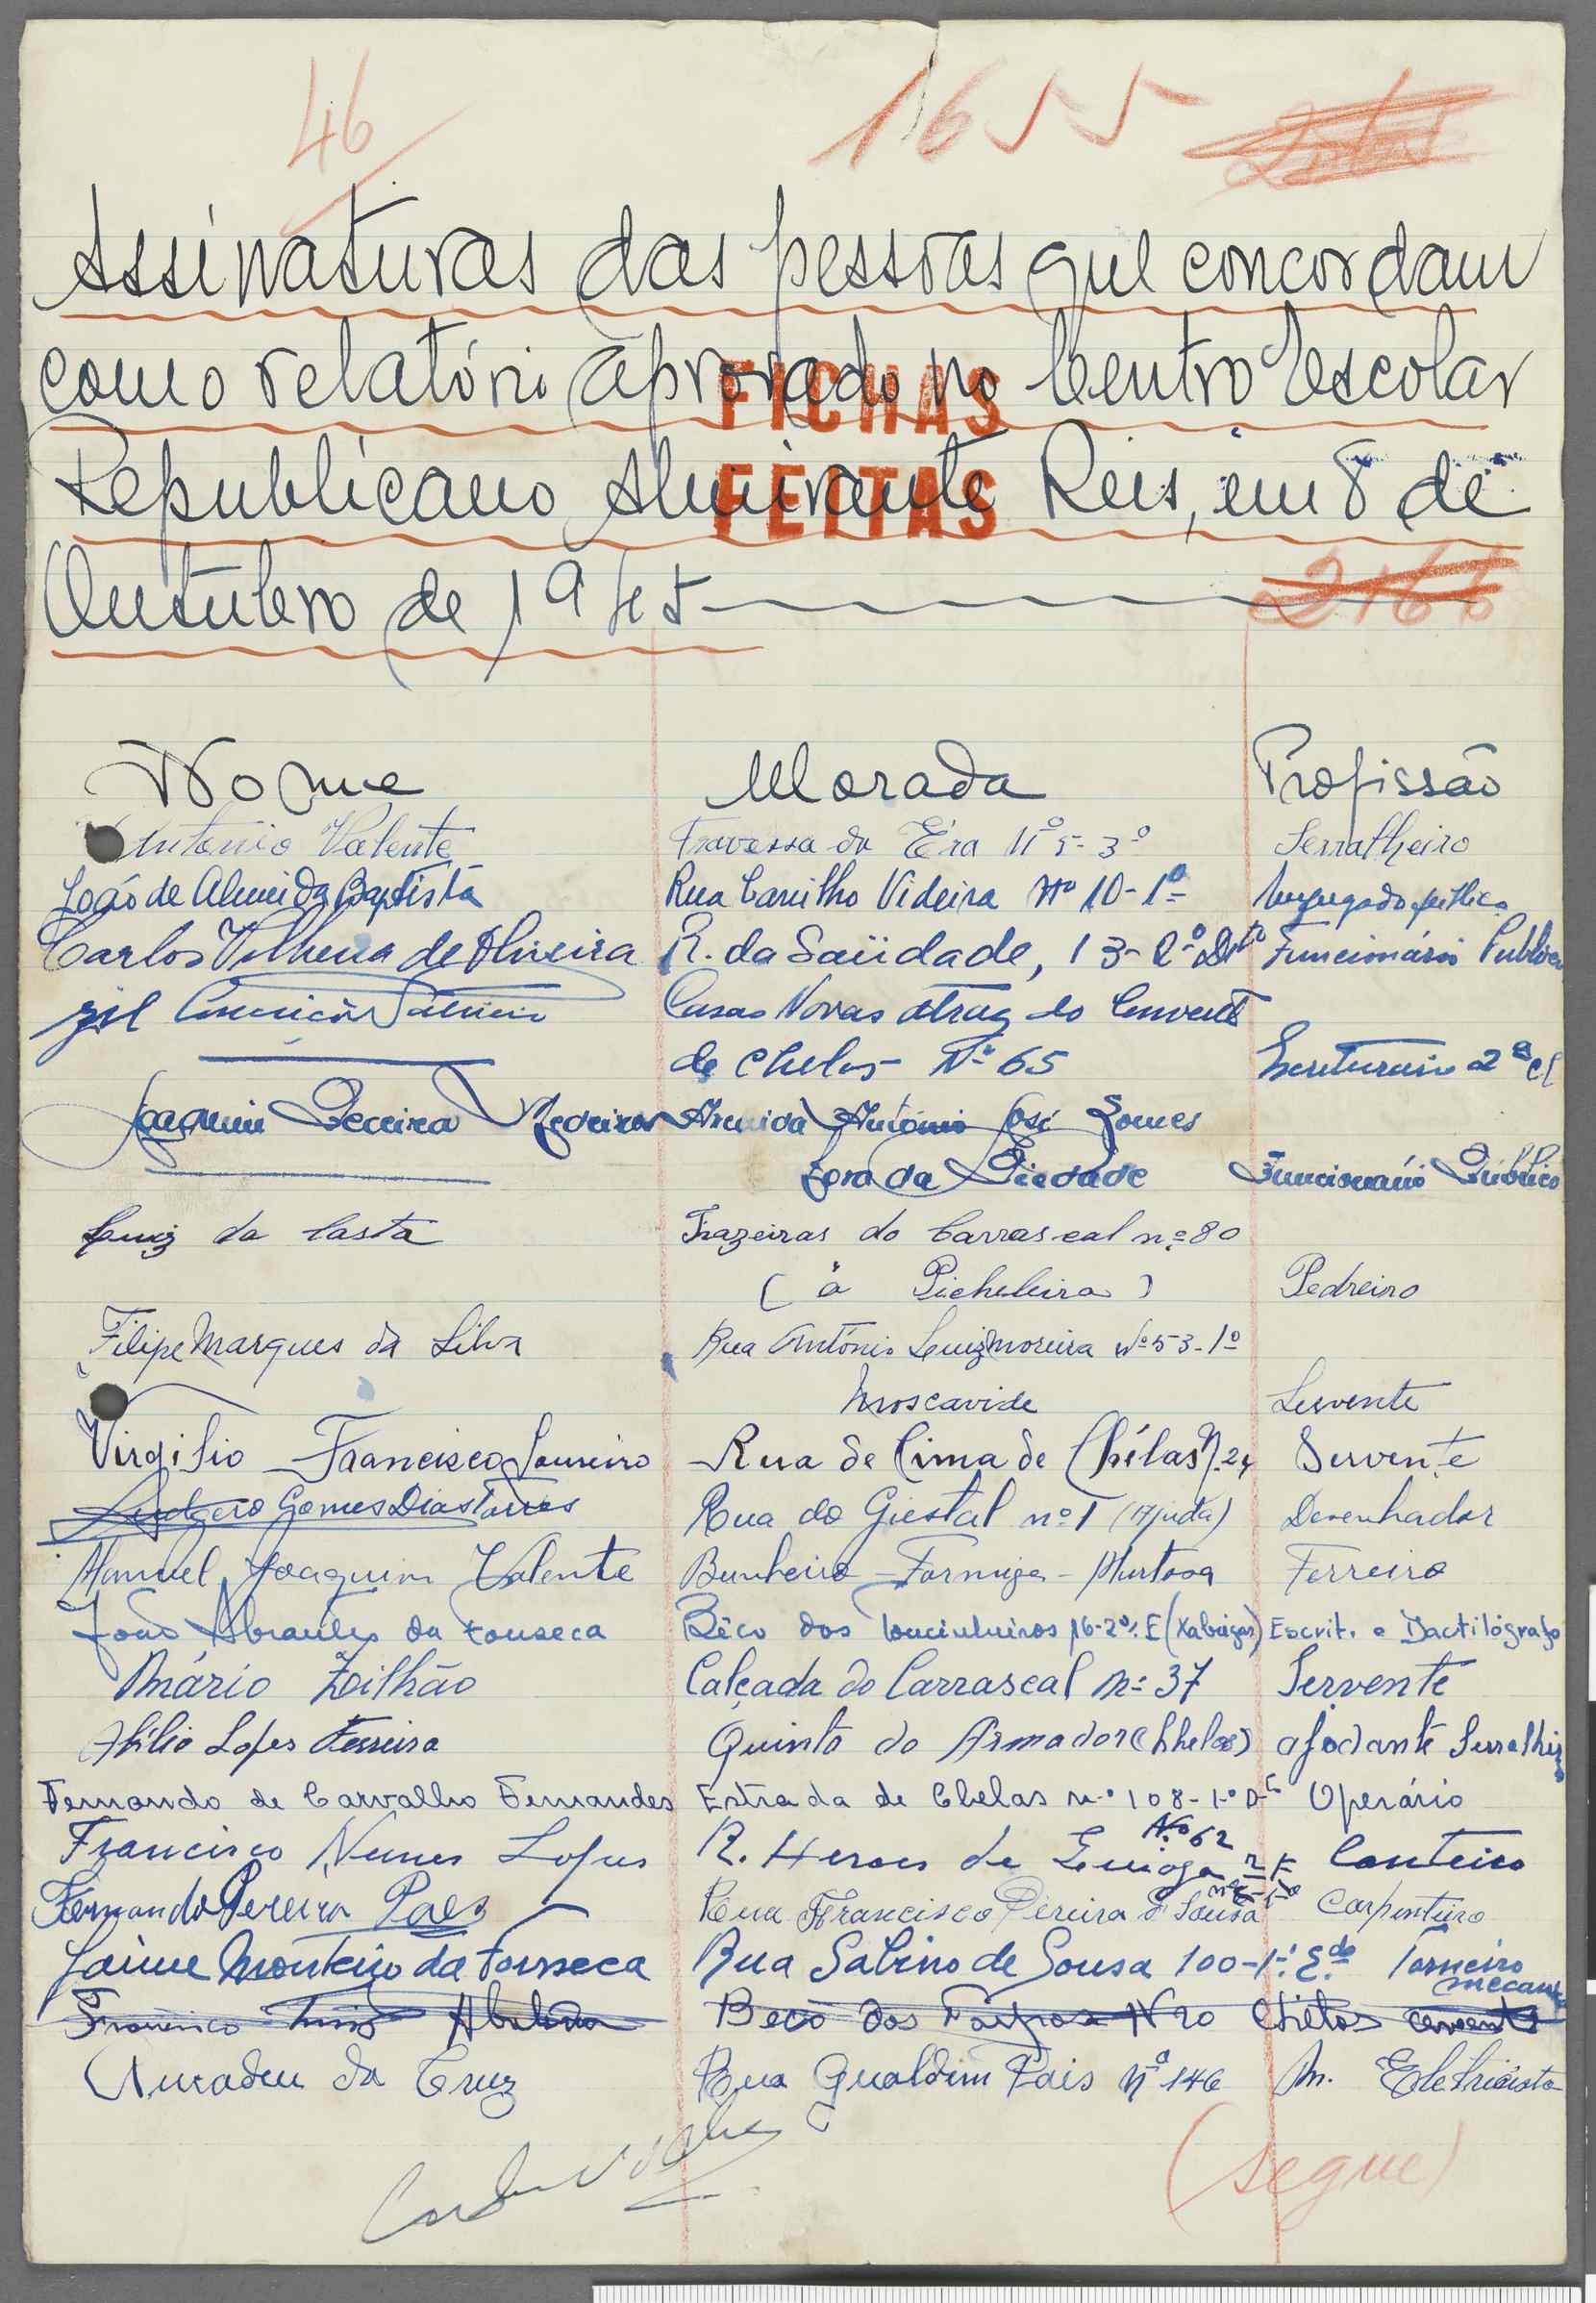 46
1655
Assinaturas das pessoas que concordam
com o relatório aprovado no Centro Escolar
FICHAS
Republicano Almirante Reis, em 8 de
FEITAS
Outubro de 1945
2166
Nome Morada Profissão
António Valente Travessa da Éra Nº 5-3º Serralheiro
João de Almeida Baptista Rua Carrilho Videira Nº 10-1º Empregado público
Carlos Vilhena de Oliveira R. da Saüdade, 13-2º Dtº Funcionário Publico
Gil Casas Novas atraz do Convento
de Chelas Nº 65 Escriturario 2ª cl
Joaquim Pereira Medeiros Avenida António José Gomes
Cova da Piedade Funcionário Público
Luiz da Costa Trazeiras do Carrascal nº 80
(à Picheleira) Pedreiro
Filipe Marques da Silva Rua António Luiz Moreira Nº 53-1º
Moscavide Servente
Virgilio Francisco Loureiro Rua de Cima de Chélas Nº 24 Servente
Gomes Dias Torres Rua do Giestal nº 1 (Ajuda) Desenhador
Manuel Joaquim Valente Bunheiro - Formiga - Murtosa Ferreiro
João Abrantes da Fonseca Bêco dos Toucinheiros 16-2º E (Xabregas) Escrit. e Dactilógrafo
Mário Zilhão Calçada do Carrascal nº 37 Servente
Abílio Lopes Ferreira Quinta do Armador (Chelas) ajodante Serralheiro
Fernando de Carvalho Fernandes Estrada de Chelas nº 108-1º D-t Operário
Nº 62
Francisco Nunes Lopes R. Herois de Quionga Canteiro
Fernando Pereira Paes Rua Francisco Pereira de Sousa Carpinteiro
Jaime Monteiro da Fonseca Rua Sabino de Sousa 100-1º E.do Torneiro
mecanico
Francisco Beco dos N 20 servente
Amadeu da Cruz Rua Gualdim Pais Nº 146 M. Eletricista
(segue)